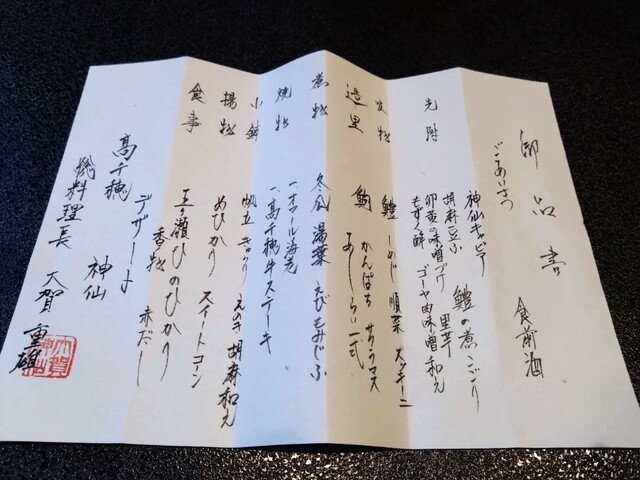 御品書
ごあいさつ 食前酒
先附 神仙キャビア 鱧の煮こごり
胡麻豆ふ 里芋
卵黄の味噌づけ ゴーヤ肉味噌和え
もずく酢
吸物 鱧 しめじ 順菜 ズッキーニ
造里 鮪 かんぱち サクラマス
あしらい一式
煮物 冬瓜 湯葉 えび もみじふ
焼物 一、オマール海老
一、高千穂牛ステーキ
小鉢 帆立 きゅうり えのき 胡麻和え
揚物 めひかり スイートコーン
食事 五ヶ瀬ひのひかり
香物 赤だし
デザート
高千穂 神仙
総料理長 大賀 重雄